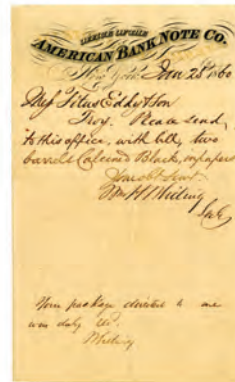 OFFICE OF THE
AMERICAN BANK NOTE CO.
New York, Jan 28th 1860
Mess Titus Eddy & Son
Troy. Please send
to this office, with bill, two
barrels Calcined Black, in papers
Your obt Servt
Wm H Whiting
Secy
Your package directed to me
was duly
Whiting